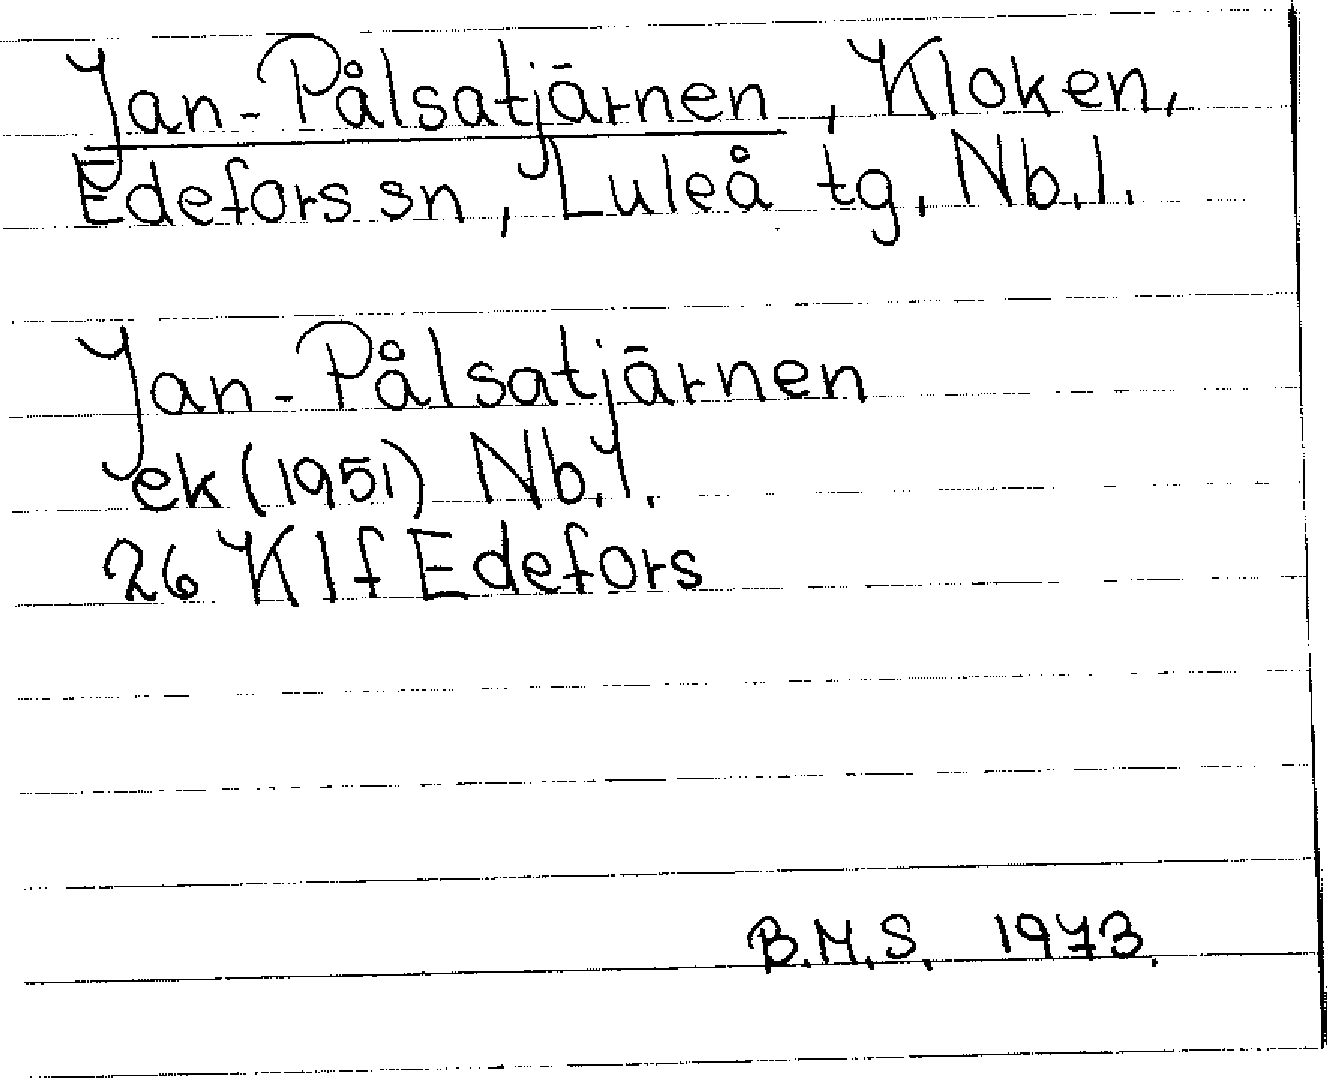 Jan-Pålsatjärnen, Kloken,
Edefors sn, Luleå tg, Nb.l.
Jan-Pålsatjärnen
ek (1951) Nb.l.
26 K l f Edefors
B.M.S. 1973.